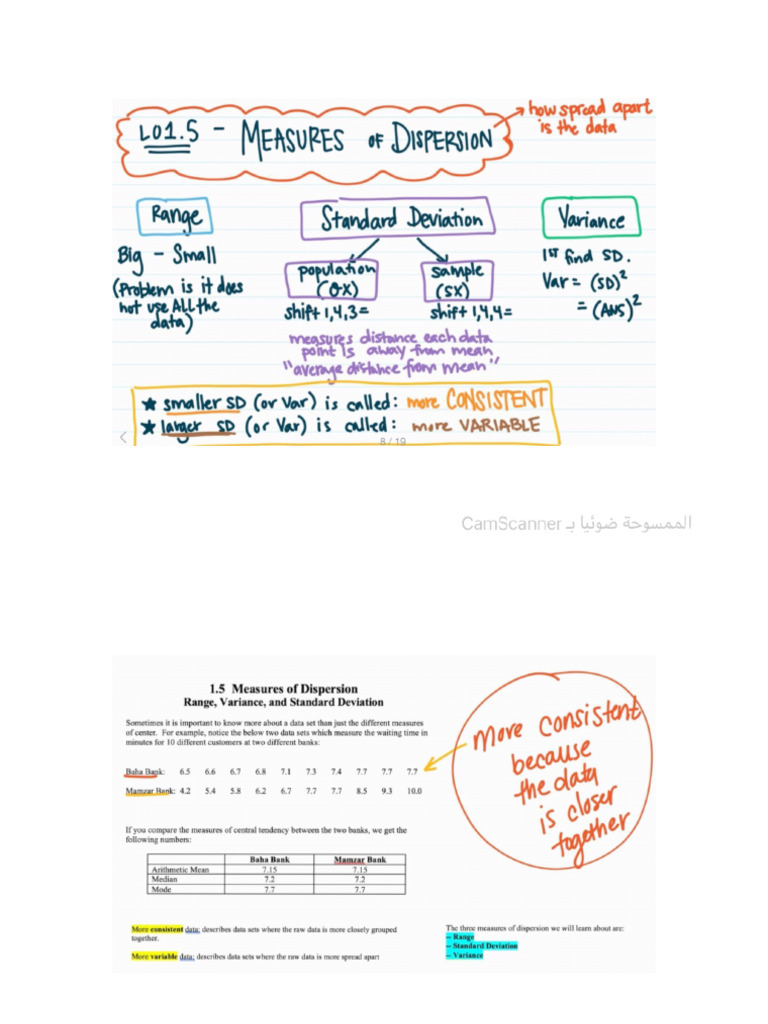 LO1.5 - MEASURES OF DISPERSION
→ how spread apart
is the data
Range
Big - Small
(Problem is it does
not use ALL the
data)
Standard Deviation
population
(σx)
shift 1,4,3=
sample
(sx)
shift 1,4,4=
measures distance each data
point is away from mean
"average distance from mean"
Variance
1ST find SD.
Var = (SD)²
= (ANS)²
★ smaller SD (or Var) is called: more CONSISTENT
★ larger SD (or Var) is called: more VARIABLE
8 / 19
الممسوحة ضوئيا بـ CamScanner
1.5 Measures of Dispersion
Range, Variance, and Standard Deviation
Sometimes it is important to know more about a data set than just the different measures
of center. For example, notice the below two data sets which measure the waiting time in
minutes for 10 different customers at two different banks:
Baha Bank: 6.5 6.6 6.7 6.8 7.1 7.3 7.4 7.7 7.7 7.7
Mamzar Bank: 4.2 5.4 5.8 6.2 6.7 7.7 7.7 8.5 9.3 10.0
more consistent
because
the data
is closer
together
If you compare the measures of central tendency between the two banks, we get the
following numbers:
Baha Bank Mamzar Bank
Arithmetic Mean 7.15 7.15
Median 7.2 7.2
Mode 7.7 7.7
More consistent data: describes data sets where the raw data is more closely grouped
together.
More variable data: describes data sets where the raw data is more spread apart
The three measures of dispersion we will learn about are:
-- Range
-- Standard Deviation
-- Variance